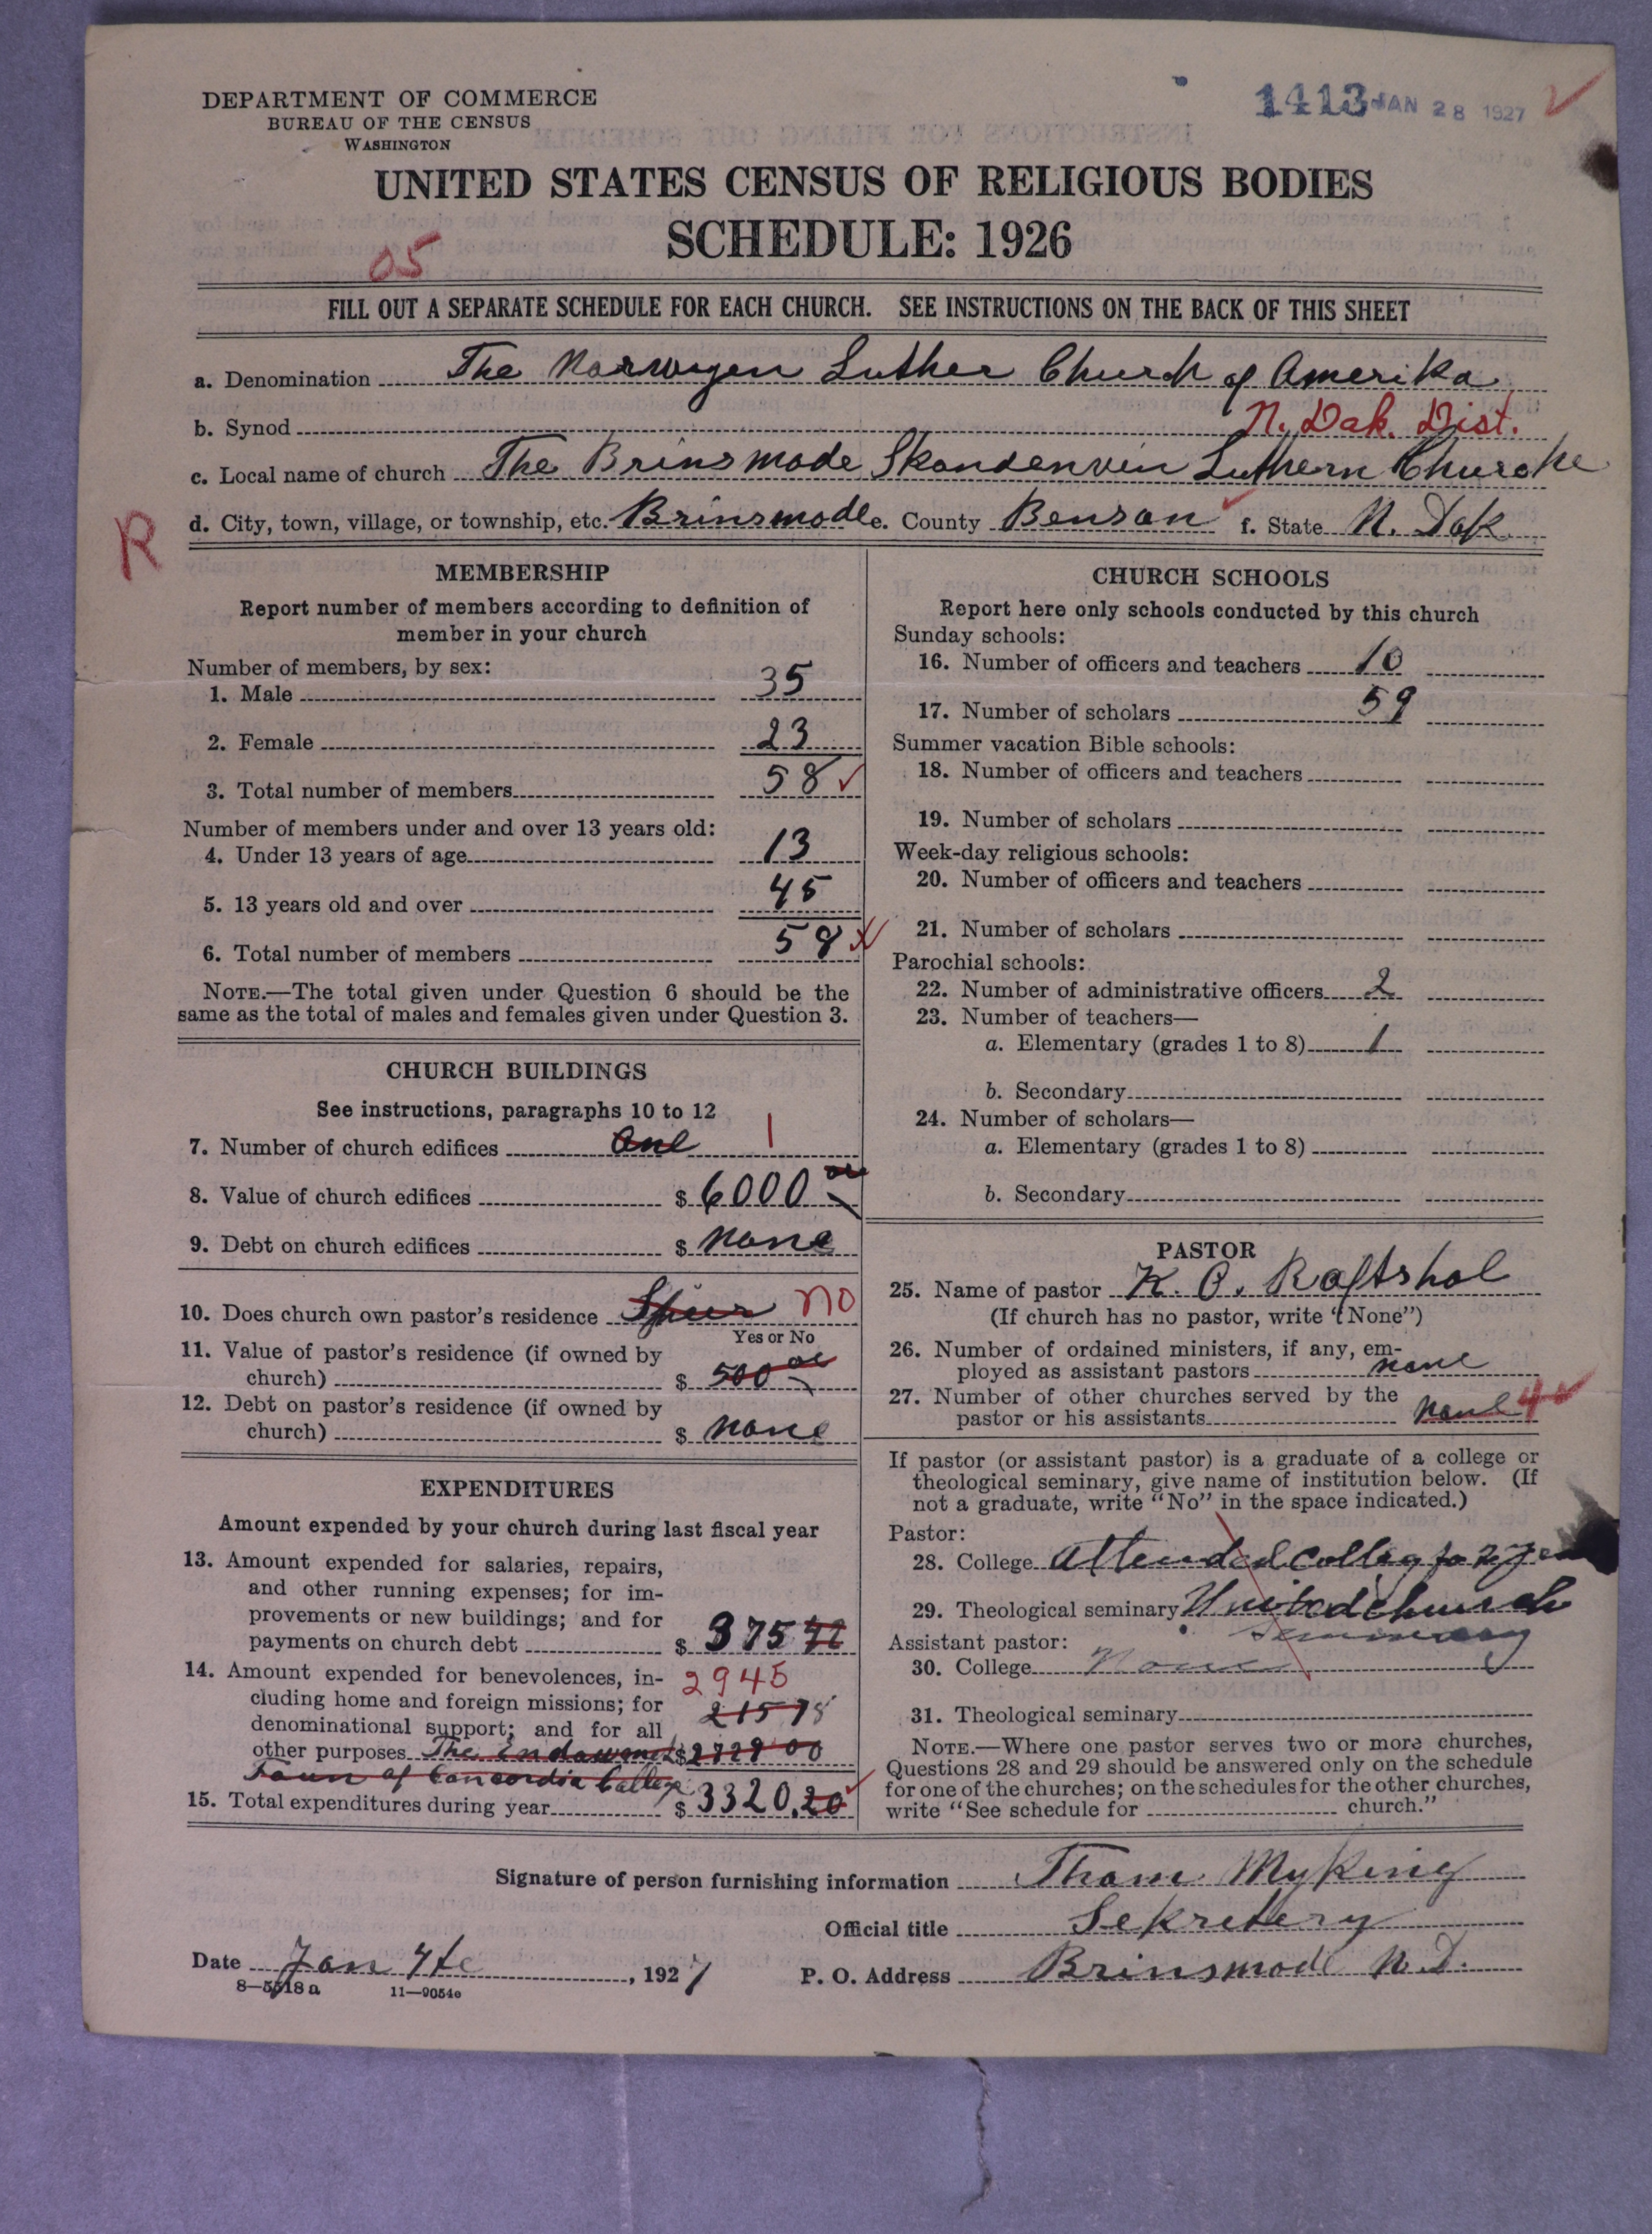 DEPARTMENT OF COMMERCE
BUREAU OF THE CENSUS
WASHINGTON
1413 JAN 28 1927
UNITED STATES CENSUS OF RELIGIOUS BODIES
SCHEDULE: 1926
05
FILL OUT A SEPARATE SCHEDULE FOR EACH CHURCH. SEE INSTRUCTIONS ON THE BACK OF THIS SHEET
a. Denomination The Norwegen Luther Church of Amerika
b. Synod N. Dak. Dist.
c. Local name of church The Brinsmade Skandenvien Luthern Churche
R
d. City, town, village, or township, etc. Brinsmade e. County Benson f. State N. Dak
MEMBERSHIP
Report number of members according to definition of
member in your church
Number of members, by sex:
1. Male 35
2. Female 23
3. Total number of members 58
Number of members under and over 13 years old:
4. Under 13 years of age 13
5. 13 years old and over 45
6. Total number of members 58
NOTE.—The total given under Question 6 should be the
same as the total of males and females given under Question 3.
CHURCH BUILDINGS
See instructions, paragraphs 10 to 12
7. Number of church edifices One 1
8. Value of church edifices $ 6000 00
9. Debt on church edifices $ none
10. Does church own pastor's residence no
Yes or No
11. Value of pastor's residence (if owned by
church) $ 500 00
12. Debt on pastor's residence (if owned by
church) $ none
EXPENDITURES
Amount expended by your church during last fiscal year
13. Amount expended for salaries, repairs,
and other running expenses; for im-
provements or new buildings; and for
payments on church debt $ 375
14. Amount expended for benevolences, in-
2945
cluding home and foreign missions; for
denominational support; and for all
other purposes The endowment $ 2729 00
of Concordia College
15. Total expenditures during year $ 3320.20
CHURCH SCHOOLS
Report here only schools conducted by this church
Sunday schools:
16. Number of officers and teachers 10
17. Number of scholars 59
Summer vacation Bible schools:
18. Number of officers and teachers
19. Number of scholars
Week-day religious schools:
20. Number of officers and teachers
21. Number of scholars
Parochial schools:
22. Number of administrative officers 2
23. Number of teachers—
a. Elementary (grades 1 to 8) 1
b. Secondary
24. Number of scholars—
a. Elementary (grades 1 to 8)
b. Secondary
PASTOR
25. Name of pastor K. O. Raftshol
(If church has no pastor, write "None")
26. Number of ordained ministers, if any, em-
ployed as assistant pastors none
27. Number of other churches served by the
pastor or his assistants none 4
If pastor (or assistant pastor) is a graduate of a college or
theological seminary, give name of institution below. (If
not a graduate, write "No" in the space indicated.)
Pastor:
28. College Attended College fo 2
29. Theological seminary United church
Seminary
Assistant pastor:
30. College None
31. Theological seminary
NOTE.—Where one pastor serves two or more churches,
Questions 28 and 29 should be answered only on the schedule
for one of the churches; on the schedules for the other churches,
write "See schedule for church."
Signature of person furnishing information Myking
Official title Sekretery
Date Jan , 1927 P. O. Address Brinsmade N. D.
8—5518 a 11—9054e